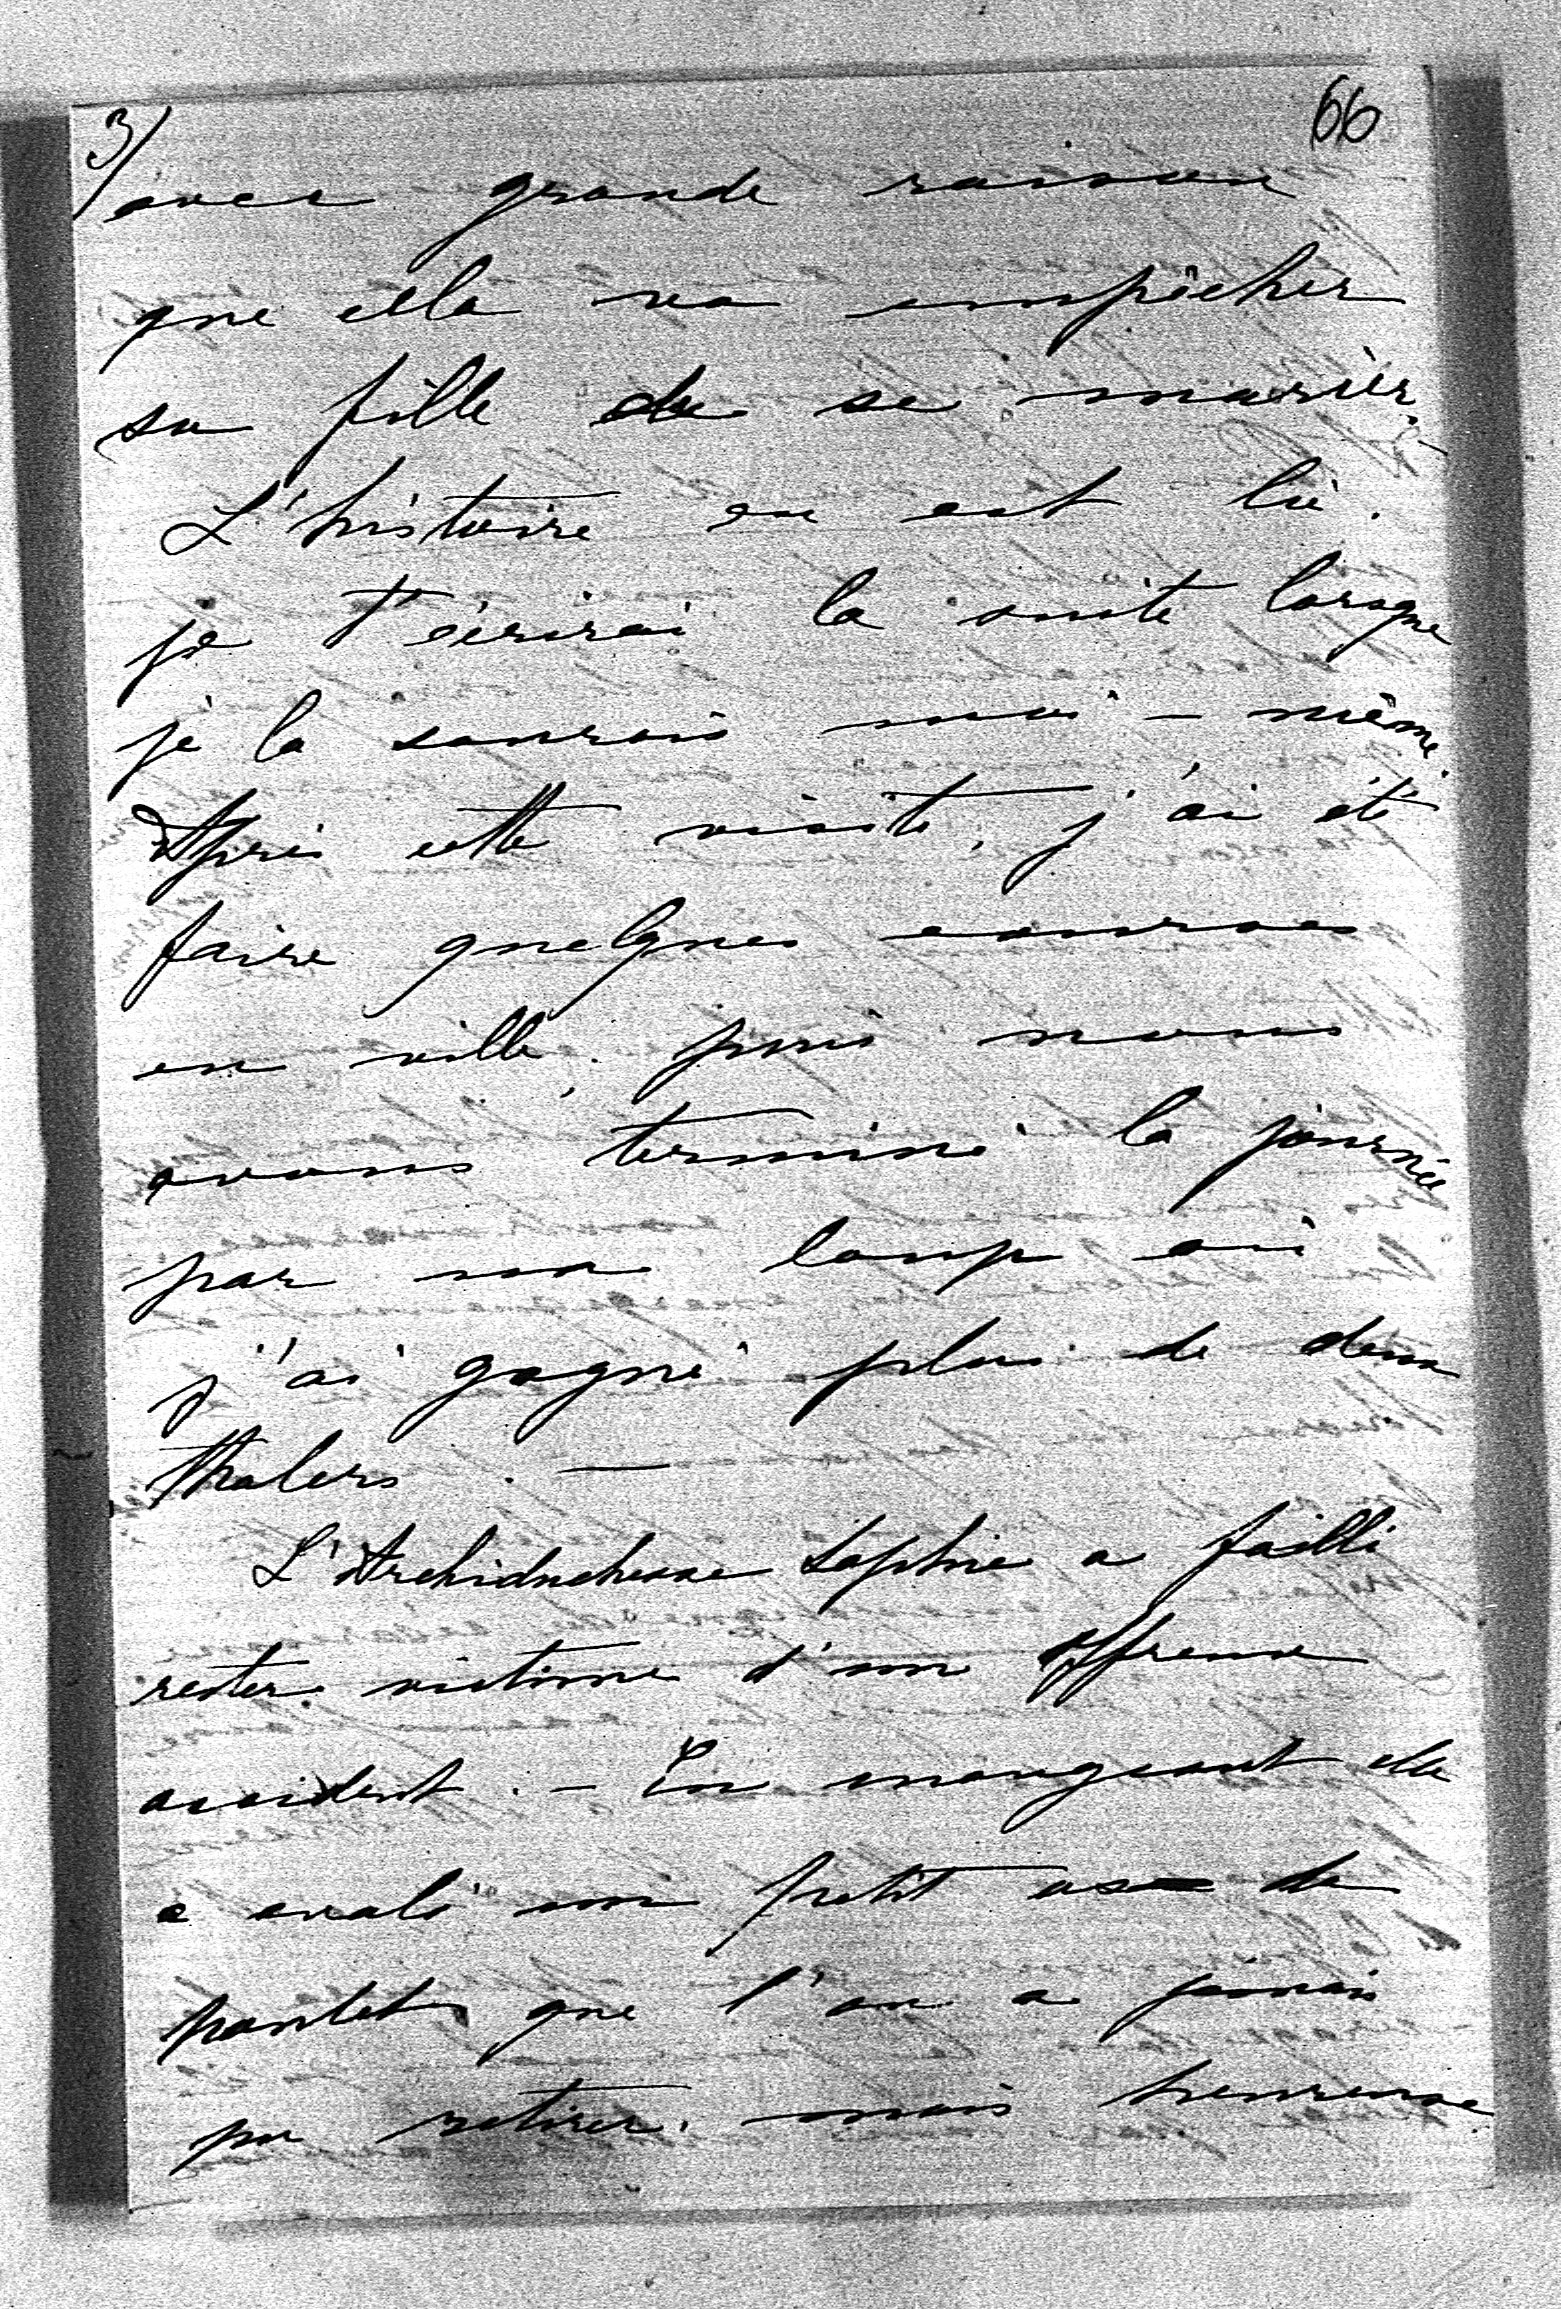 3/
66
avec grande raison
que cela va empêcher
sa fille de se marier.
L'histoire en est là.
je t'écrirai la suite lorsque
je la saurais moi-même.
Après cette visite, j'ai été
faire quelques courses
en ville; puis nous
avons terminé la journée
par un loup où
j'ai gagné plus de deux
thalers. —
L'Archiduchesse Sophie a failli
rester victime d'un affreux
accident. — En mangeant elle
a avalé un petit os de
poulet que l'on a jamais
pu retirer. mais heureuse